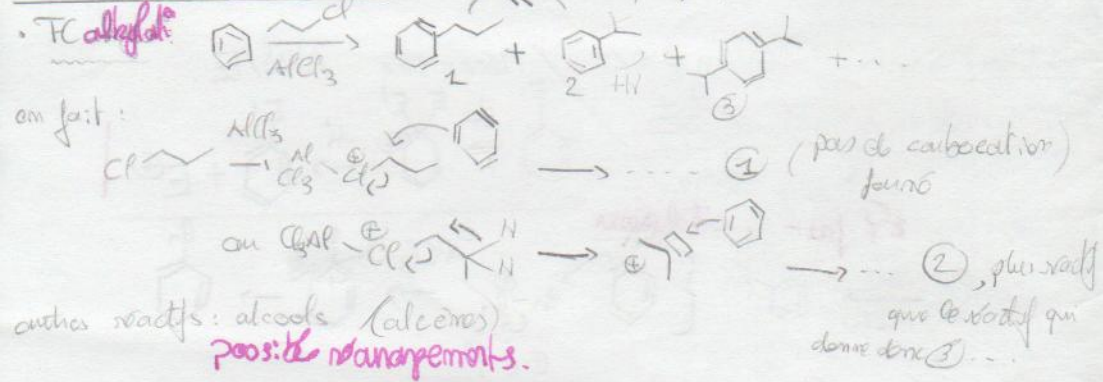 . FC alkylat°
Cl
AlCl3
1 + 2 + 3 + ....
on fait :
AlCl3
Cl → Al Cl3 Cl ⊕ → ..... 1 (pas de carbocation)
formé
ou Cl3Al Cl ⊕ H H → ⊕ → ... 2 , plus réactif
que le réactif qui
donne donc 3 ....
autres réactifs : alcools (alcènes)
possible réarrangements.